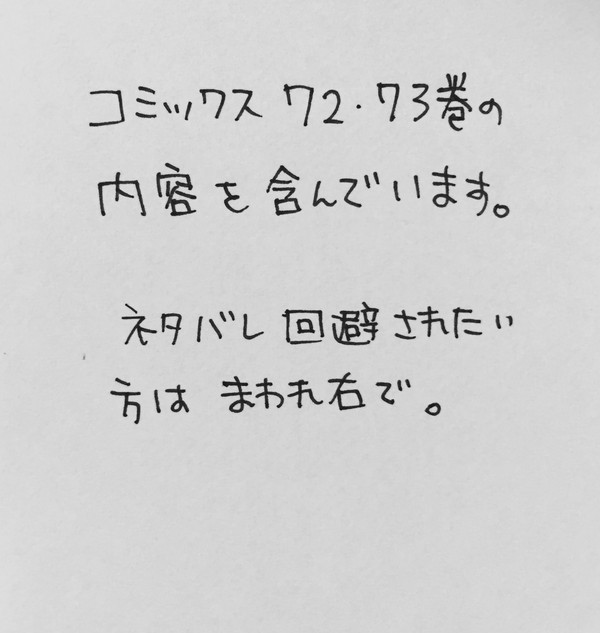 コミックス 72・73巻の
内容を含んでいます。
ネタバレ回避されたい
方は まわれ右で。